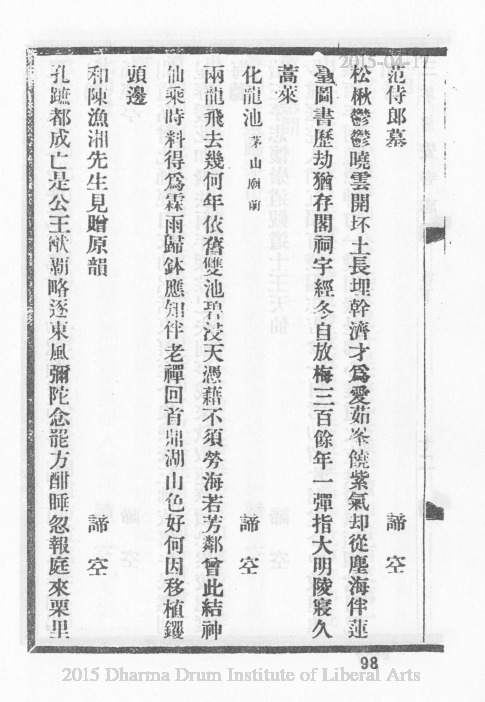 2015-04-17
范侍郎墓 諦空
松楸鬱鬱曉雲開坏土長埋幹濟才爲愛茹峯饒紫氣却從塵海伴蓮
臺圖書歷劫猶存閣祠宇經冬自放梅三百餘年一彈指大明陵寢久
蒿萊
化龍池 茅山廟前 諦空
兩龍飛去幾何年依舊雙池碧浸天憑藉不須勞海若芳鄰曾此結神
仙乘時料得爲霖雨歸鉢應知伴老禪回首鼎湖山色好何因移植鑁
頭邊
和陳漁湘先生見贈原韻 諦空
孔蹠都成亡是公王猷覇略逐東風彌陀念罷方酣睡忽報庭來栗里
98
2015 Dharma Drum Institute of Liberal Arts